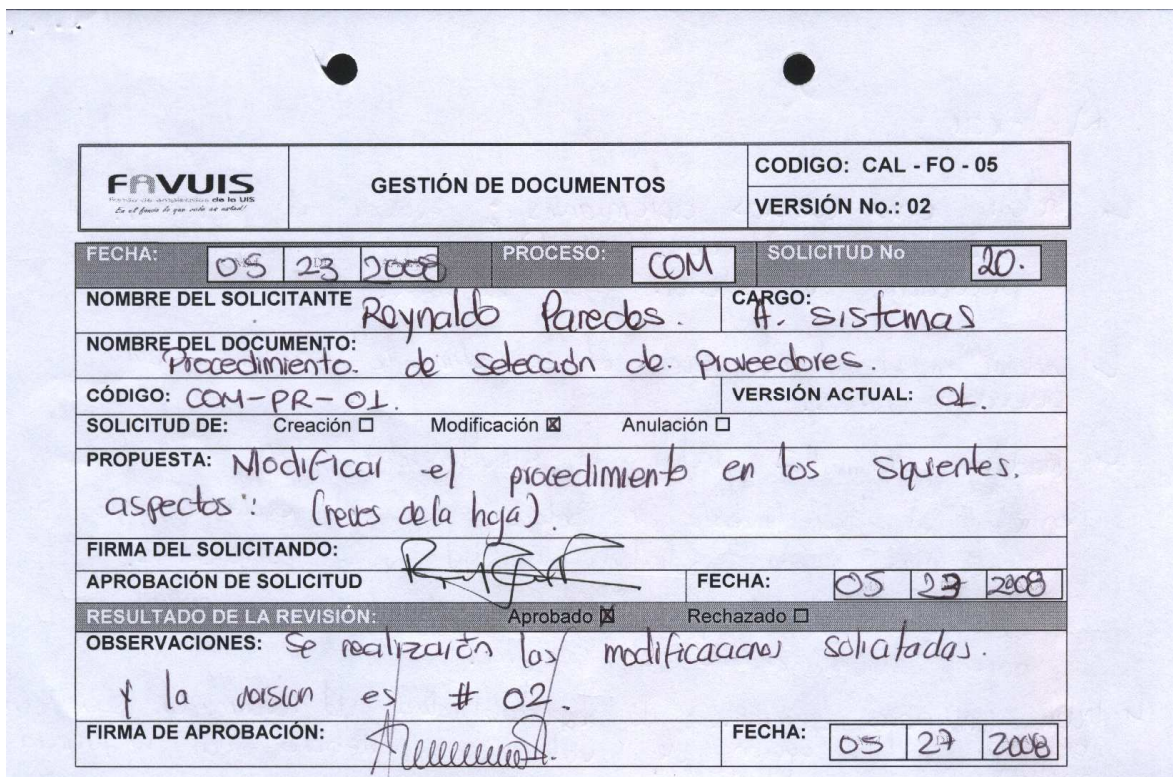 FAVUIS
Fondo de empleados de la UIS
GESTIÓN DE DOCUMENTOS
CODIGO: CAL - FO - 05
VERSIÓN No.: 02
FECHA: 05 23 2008 PROCESO: COM SOLICITUD No 20.
NOMBRE DEL SOLICITANTE Reynaldo Paredes. CARGO: A. sistemas
NOMBRE DEL DOCUMENTO:
Procedimiento. de Selección de proveedores.
CÓDIGO: COM-PR-01. VERSIÓN ACTUAL: 01.
SOLICITUD DE: Creación ☐ Modificación ☒ Anulación ☐
PROPUESTA: Modificar el procedimiento en los siguientes.
aspectos: (reves de la hoja).
FIRMA DEL SOLICITANDO:
APROBACIÓN DE SOLICITUD FECHA: 05 27 2008
RESULTADO DE LA REVISIÓN: Aprobado ☒ Rechazado ☐
OBSERVACIONES: Se realizarón las modificaciones solicitadas.
y la version es # 02.
FIRMA DE APROBACIÓN: FECHA: 05 27 2008